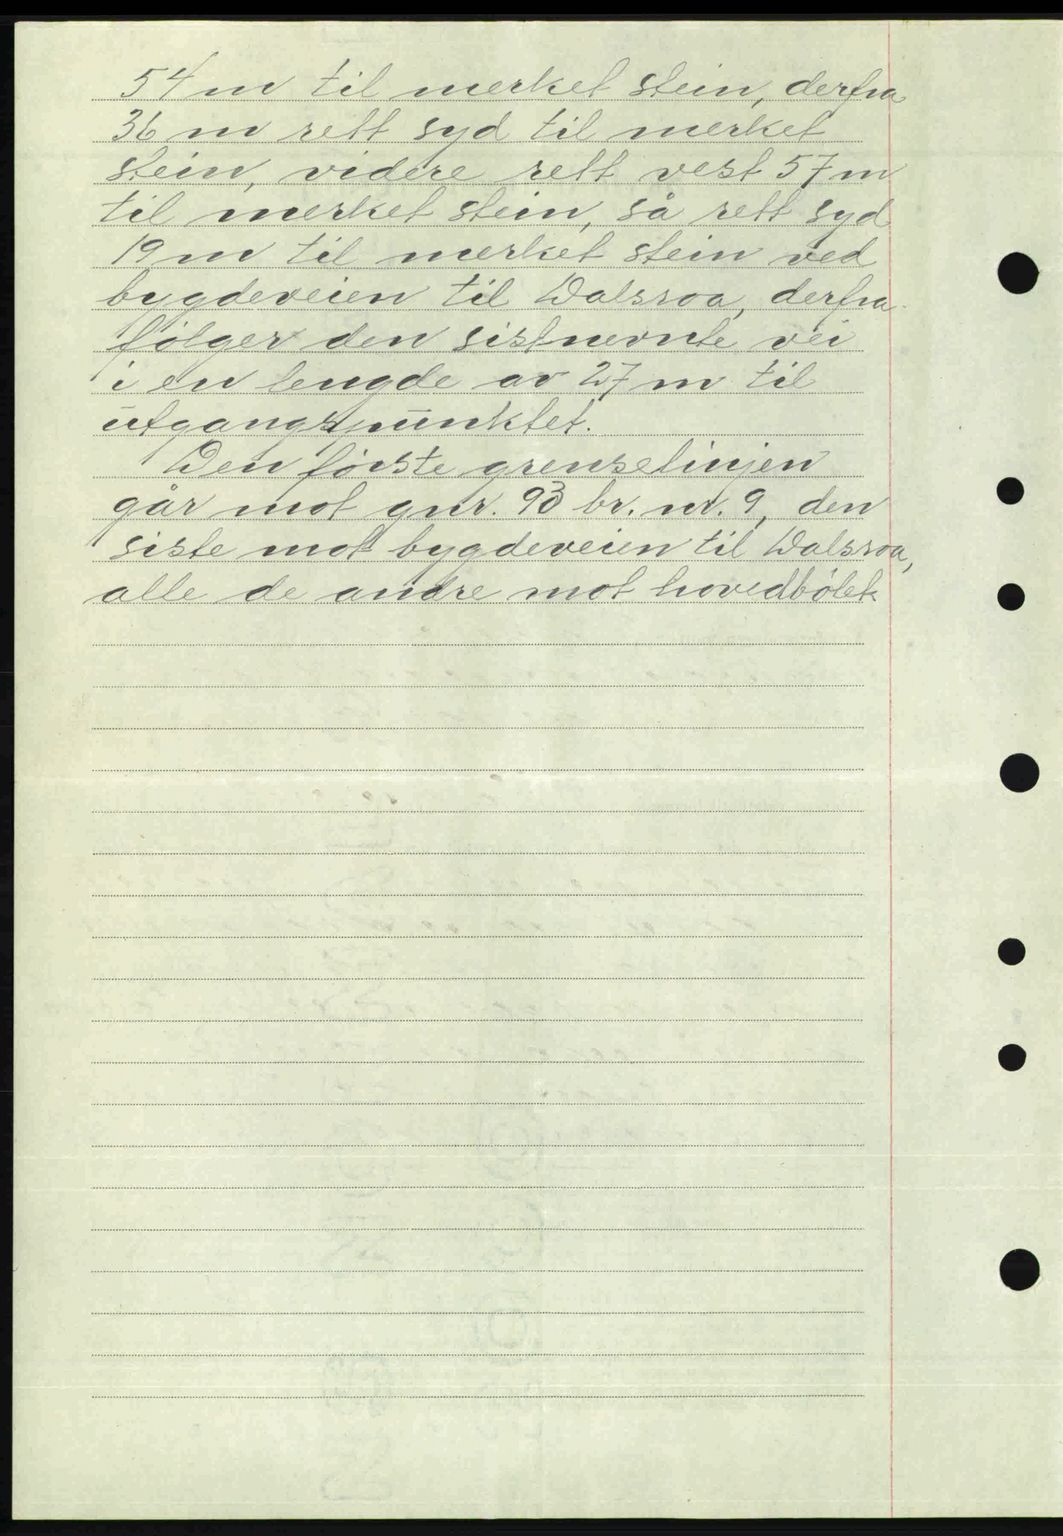 54 m til merket stein, derfra
36 m rett syd til merket
stein, videre rett vest 57 m
til merket stein, så rett syd
19 m til merket stein ved
bygdeveien til Dalsroa, derfra
følger den sistnevnte vei
i en lengde av 27 m til
utgangspunktet.
Den første grenselinjen
går mot gnr. 93 br. nr. 9, den
siste mot bygdeveien til Dalsroa,
alle de andre mot hovedbølet